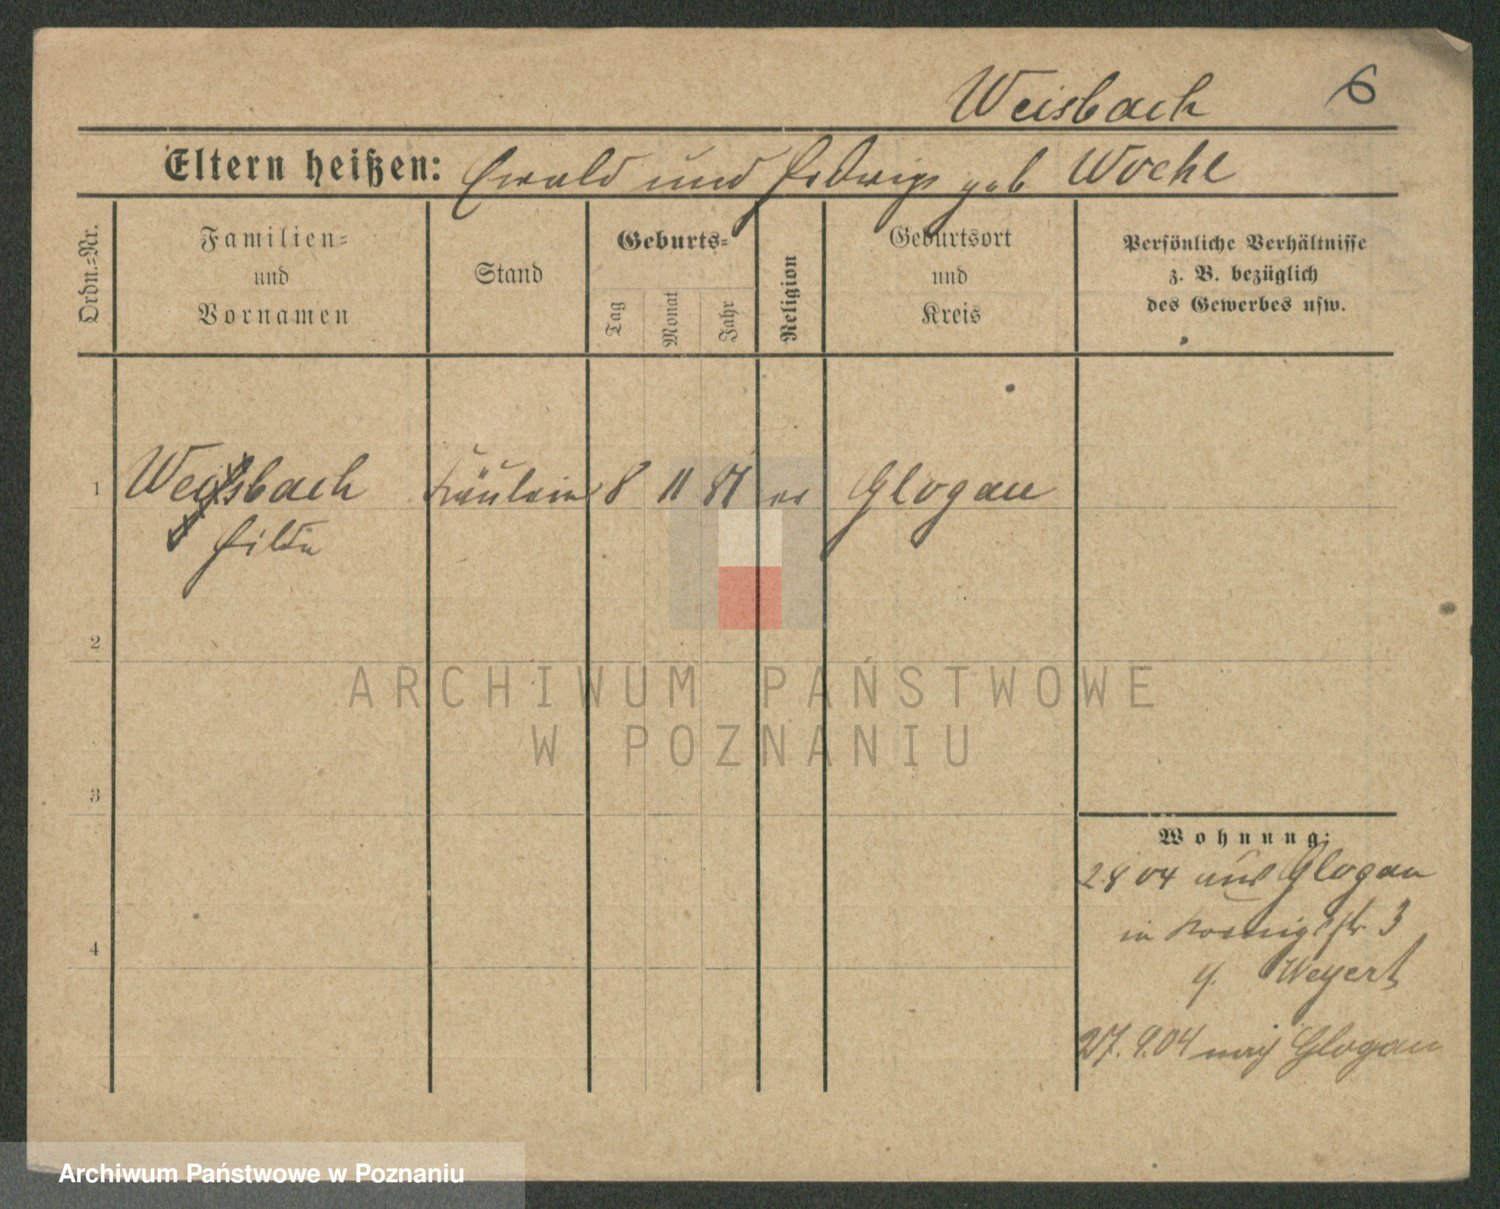 Weisbach 6
Eltern heißen: Ewald und Hedwig geb Woehl
Ordn.-Nr.
Familien-
und
Vornamen
Stand
Geburts-
Tag
Monat
Jahr
Religion
Geburtsort
und
Kreis
Persönliche Verhältnisse
z. B. bezüglich
des Gewerbes usw.
1 Weisbach Fräulein 8 11 81 ev Glogau
Hilde
2
3
4
Wohnung:
2 8 04 aus Glogau
in Koenigstr. 3
Weyert
27. 9. 04 nach Glogau
ARCHIWUM PAŃSTWOWE
W POZNANIU
Archiwum Państwowe w Poznaniu